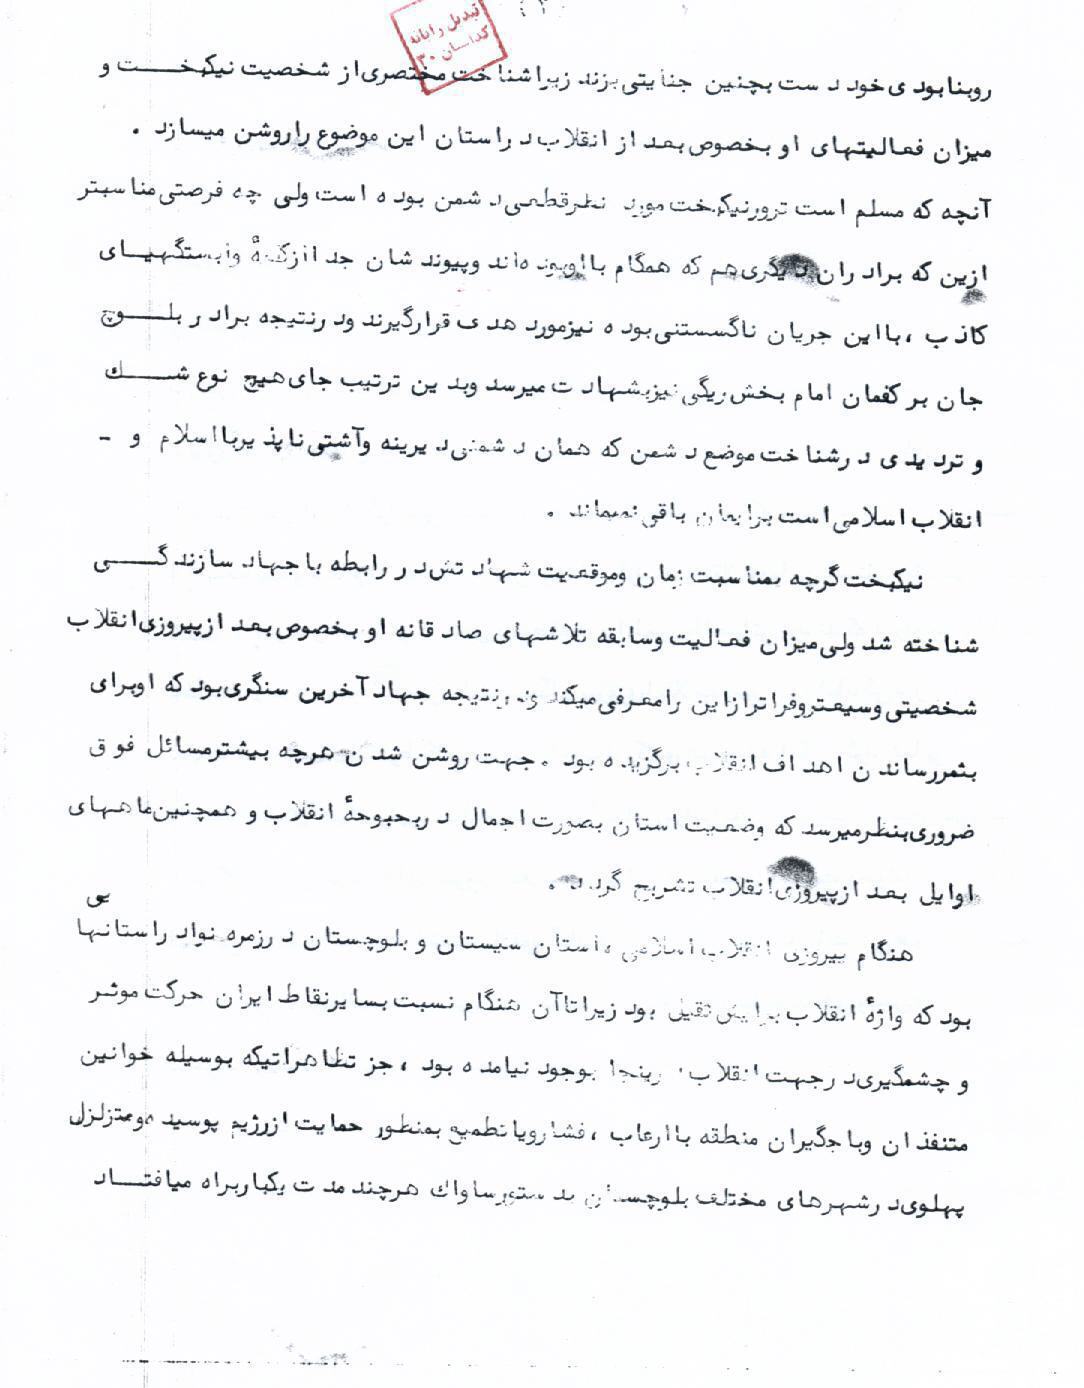 تبدیل رایانه
کداسان ۳۰
روبنابودی خود دست بچنین جنایتی بزند زیرا شناخت مختصری از شخصیت نیکبخـــت و
میزان فعالیتهای او بخصوص بعد از انقلاب در استان این موضوع را روشن میسازد .
آنچه که مسلم است ترور نیکبخت مورد نظر قطعی دشمن بوده است ولی چه فرصتی مناسبتر
ازین که برادران دیگری هم که همگام با او بوده‌اند و پیوندشان جدا از کلیهٔ وابستگهیـای
کاذب ، با این جریان ناگسستنی بوده نیز مورد هدف قرار گیرند و در نتیجه برادر بلـــوچ
جان بر کفمان امام بخش ریگی نیز بشهادت میرسد و بدین ترتیب جای هیچ نوع شـــك
و تردیدی در شناخت موضع دشمن که همان دشمنی دیرینه و آشتی ناپذیر با اسلام و -
انقلاب اسلامی است برایمان باقی نمیماند .
نیکبخت گرچه بمناسبت زمان و موقعیت شهادتش در رابطه با جهاد سازندگـــی
شناخته شد ولی میزان فعالیت و سابقه تلاشهای صادقانه او بخصوص بعد از پیروزی انقلاب
شخصیتی وسیعتر و فراتر از این را معرفی میکند و در نتیجه جهاد آخرین سنگری بود که او برای
بثمر رساندن اهداف انقلاب برگزیده بود . جهت روشن شدن هرچه بیشتر مسائل فوق
ضروری بنظر میرسد که وضعیت استان بصورت اجمال در بحبوحهٔ انقلاب و همچنین ماههای
اوایل بعد از پیروزی انقلاب تشریح گردد .
هنگام پیروزی انقلاب اسلامی ، استان سیستان و بلوچستان در زمره نوادر استانهایی
بود که واژهٔ انقلاب برایش ثقیل بود زیرا تا آن هنگام نسبت بسایر نقاط ایران حرکت موثـر
و چشمگیری در جهت انقلاب در اینجا بوجود نیامده بود ، جز تظاهراتیکه بوسیله خوانین
متنفذان و باجگیران منطقه با ارعاب ، فشار و یا تطمیع بمنظور حمایت از رژیم پوسیده و متزلزل
پهلوی در شهرهای مختلف بلوچستان بدستور ساواك هرچند مدت یکبار براه میافتـــاد